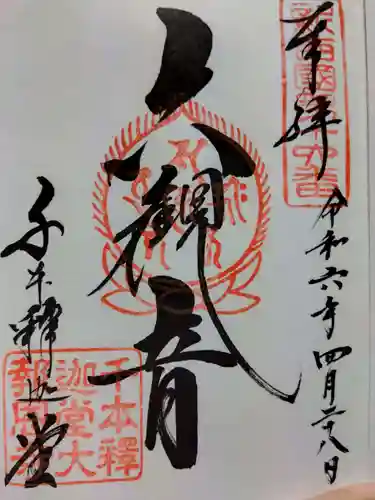 奉拝
令和六年四月二十八日
六観音
千本釋迦堂
千本釋
迦堂大
報恩寺